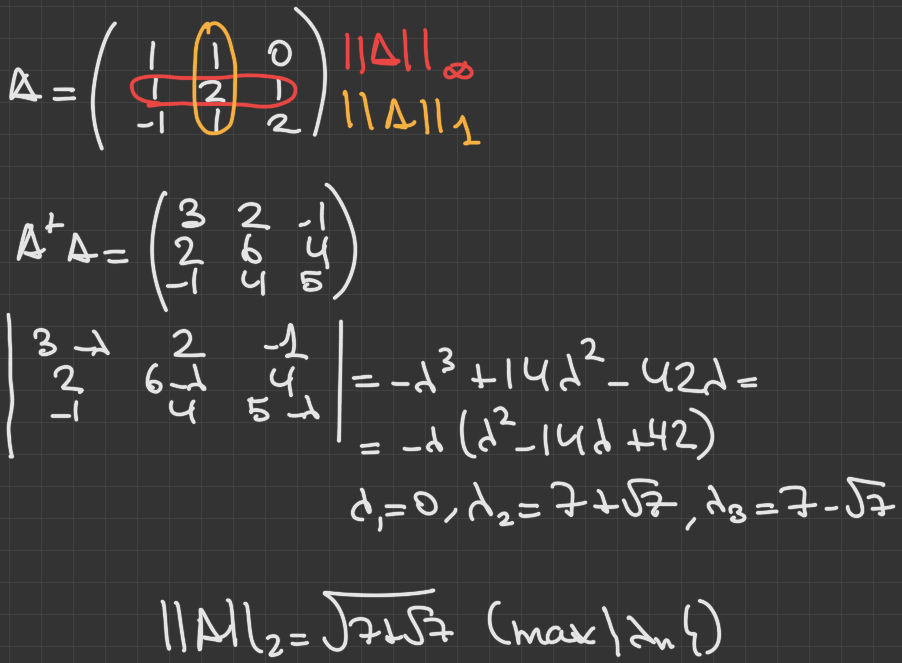 A = ( 1 1 0 ) ||A||∞
1 2 1
-1 1 2 ||A||₁
AᵗA = ( 3 2 -1 )
2 6 4
-1 4 5
| 3-λ 2 -1 |
2 6-λ 4 = -λ³ + 14λ² - 42λ =
-1 4 5-λ
= -λ(λ² - 14λ + 42)
λ₁ = 0, λ₂ = 7+√7, λ₃ = 7-√7
||A||₂ = √(7+√7) (max|λn|)